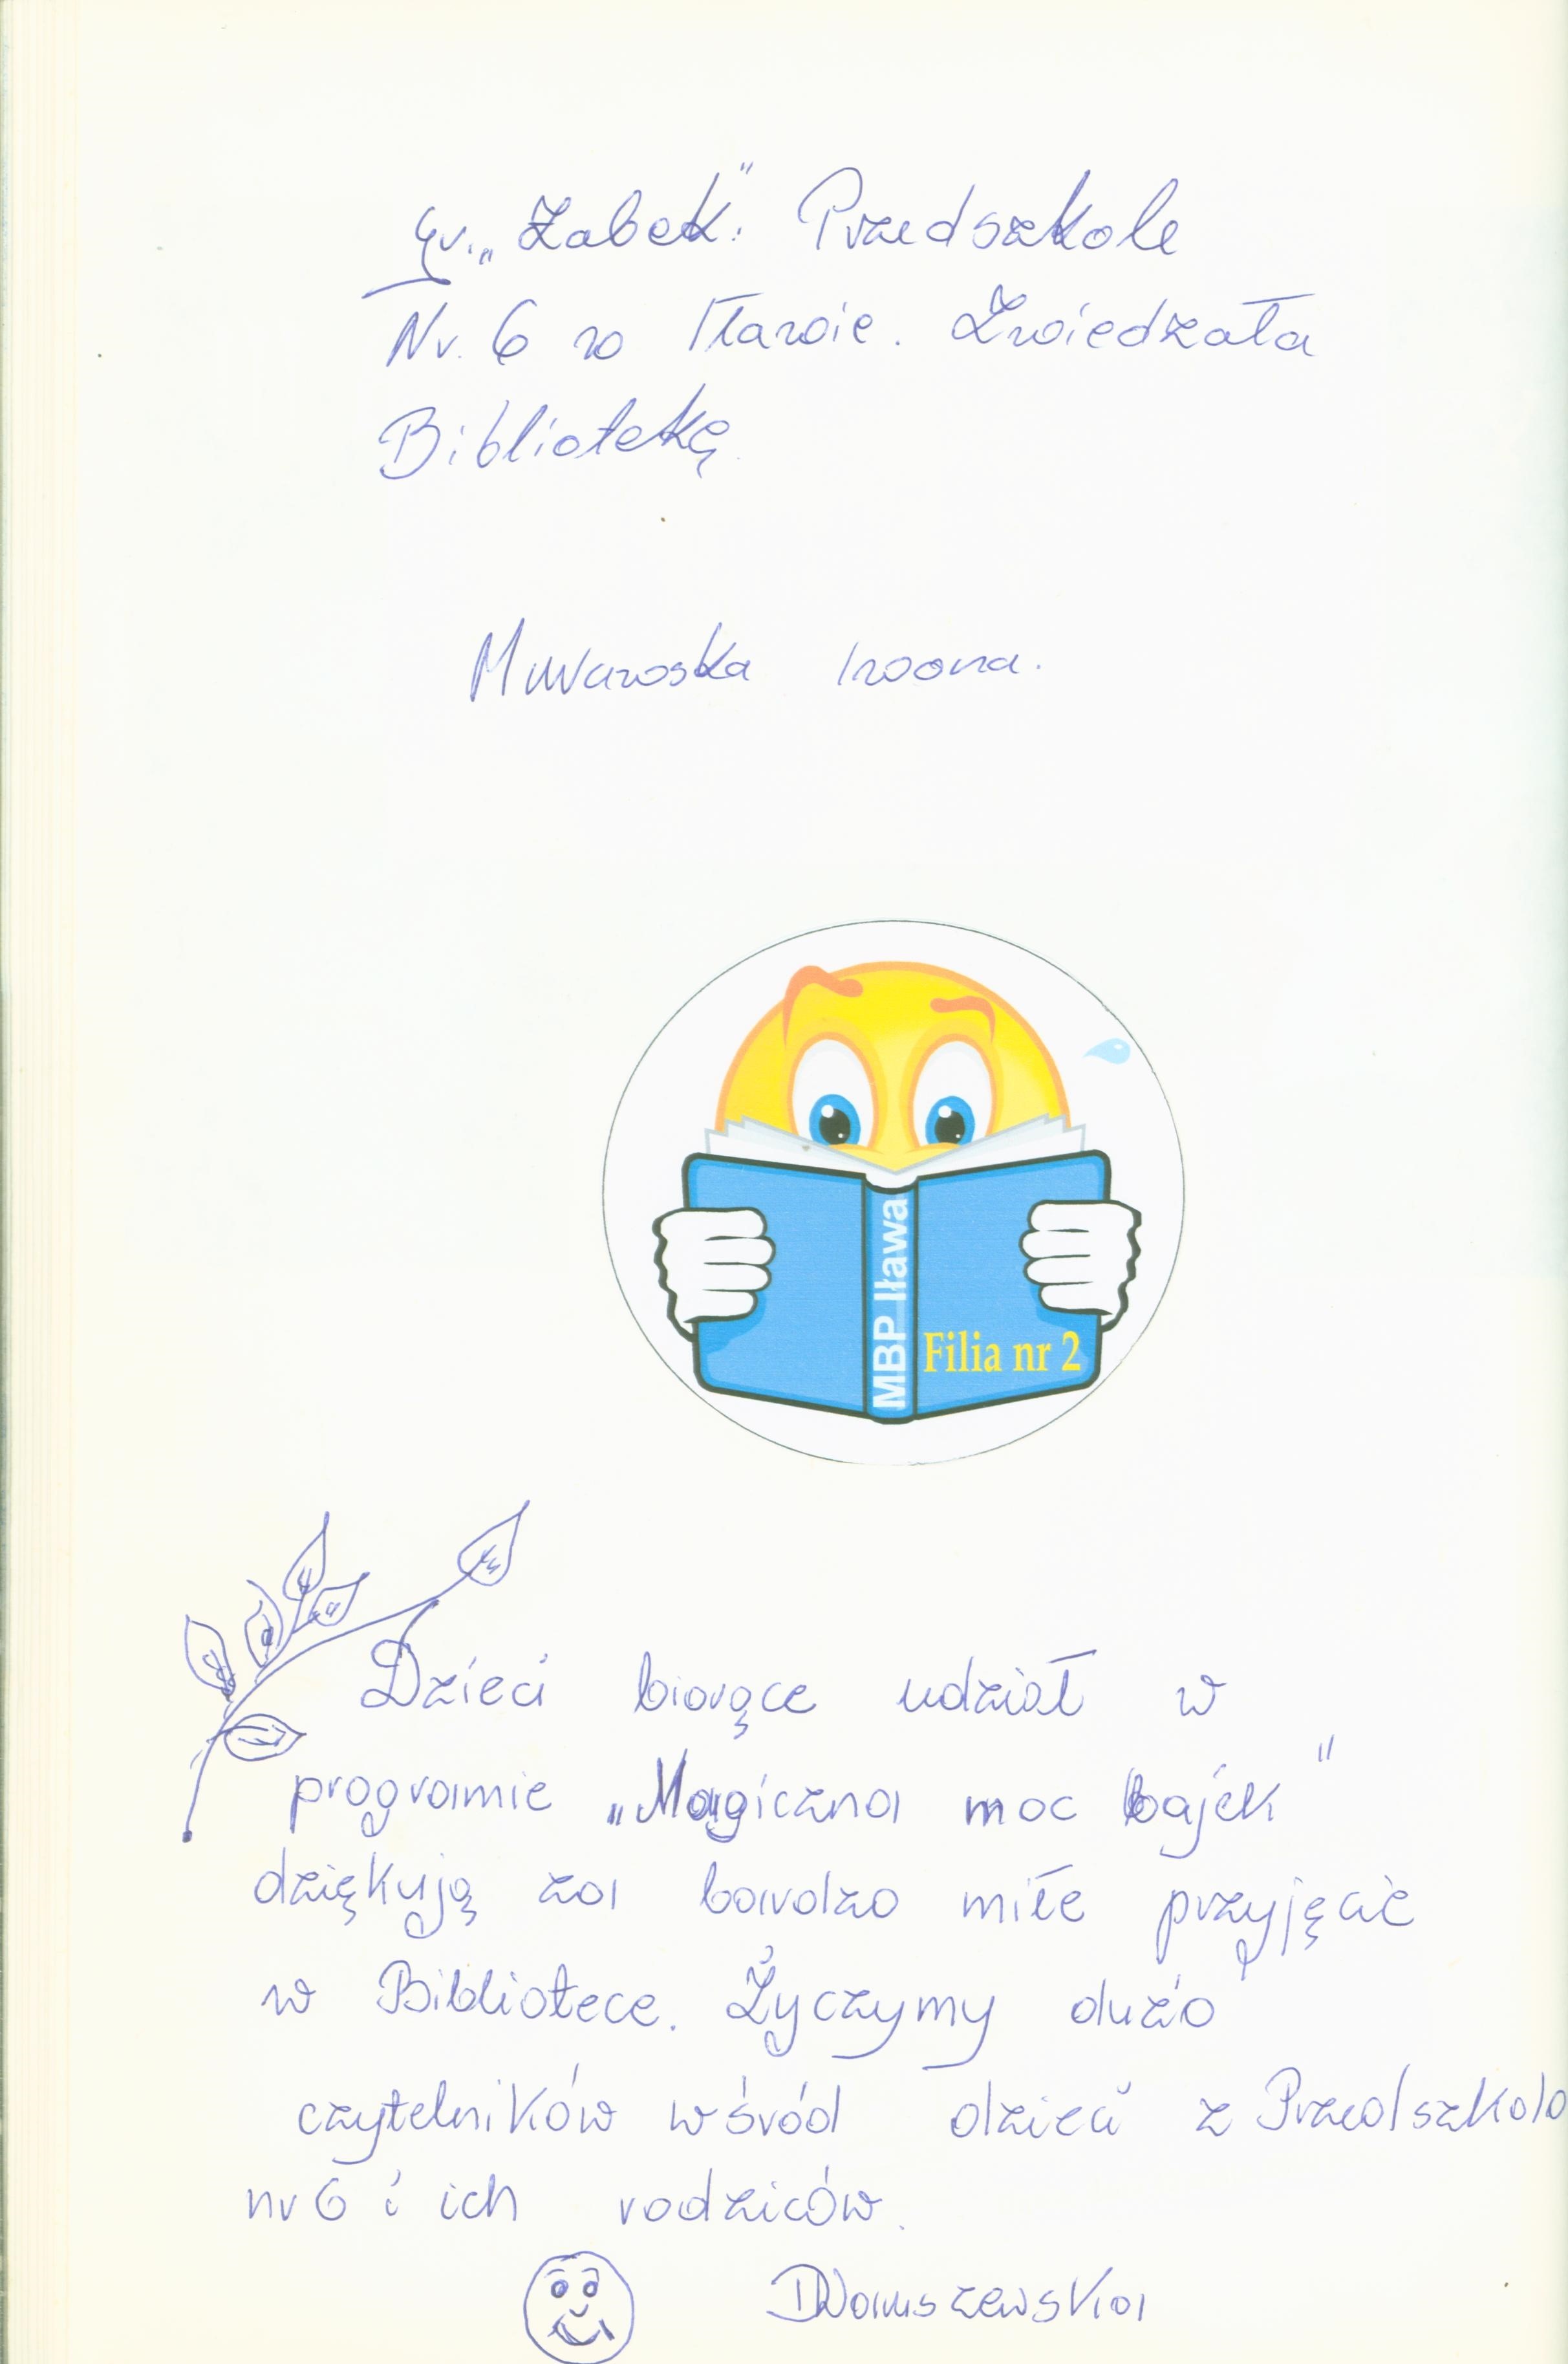 Gr. „Żabek". Przedszkole
Nr. 6 w Iławie. Zwiedzała
Bibliotekę.
Murawska Iwona.
MBP Iława
Filia nr 2
Dzieci biorące udział w
programie „Magiczna moc bajek"
dziękują za bardzo miłe przyjęcie
w Bibliotece. Życzymy dużo
czytelników wśród dzieci z Przedszkola
nr 6 i ich rodziców.